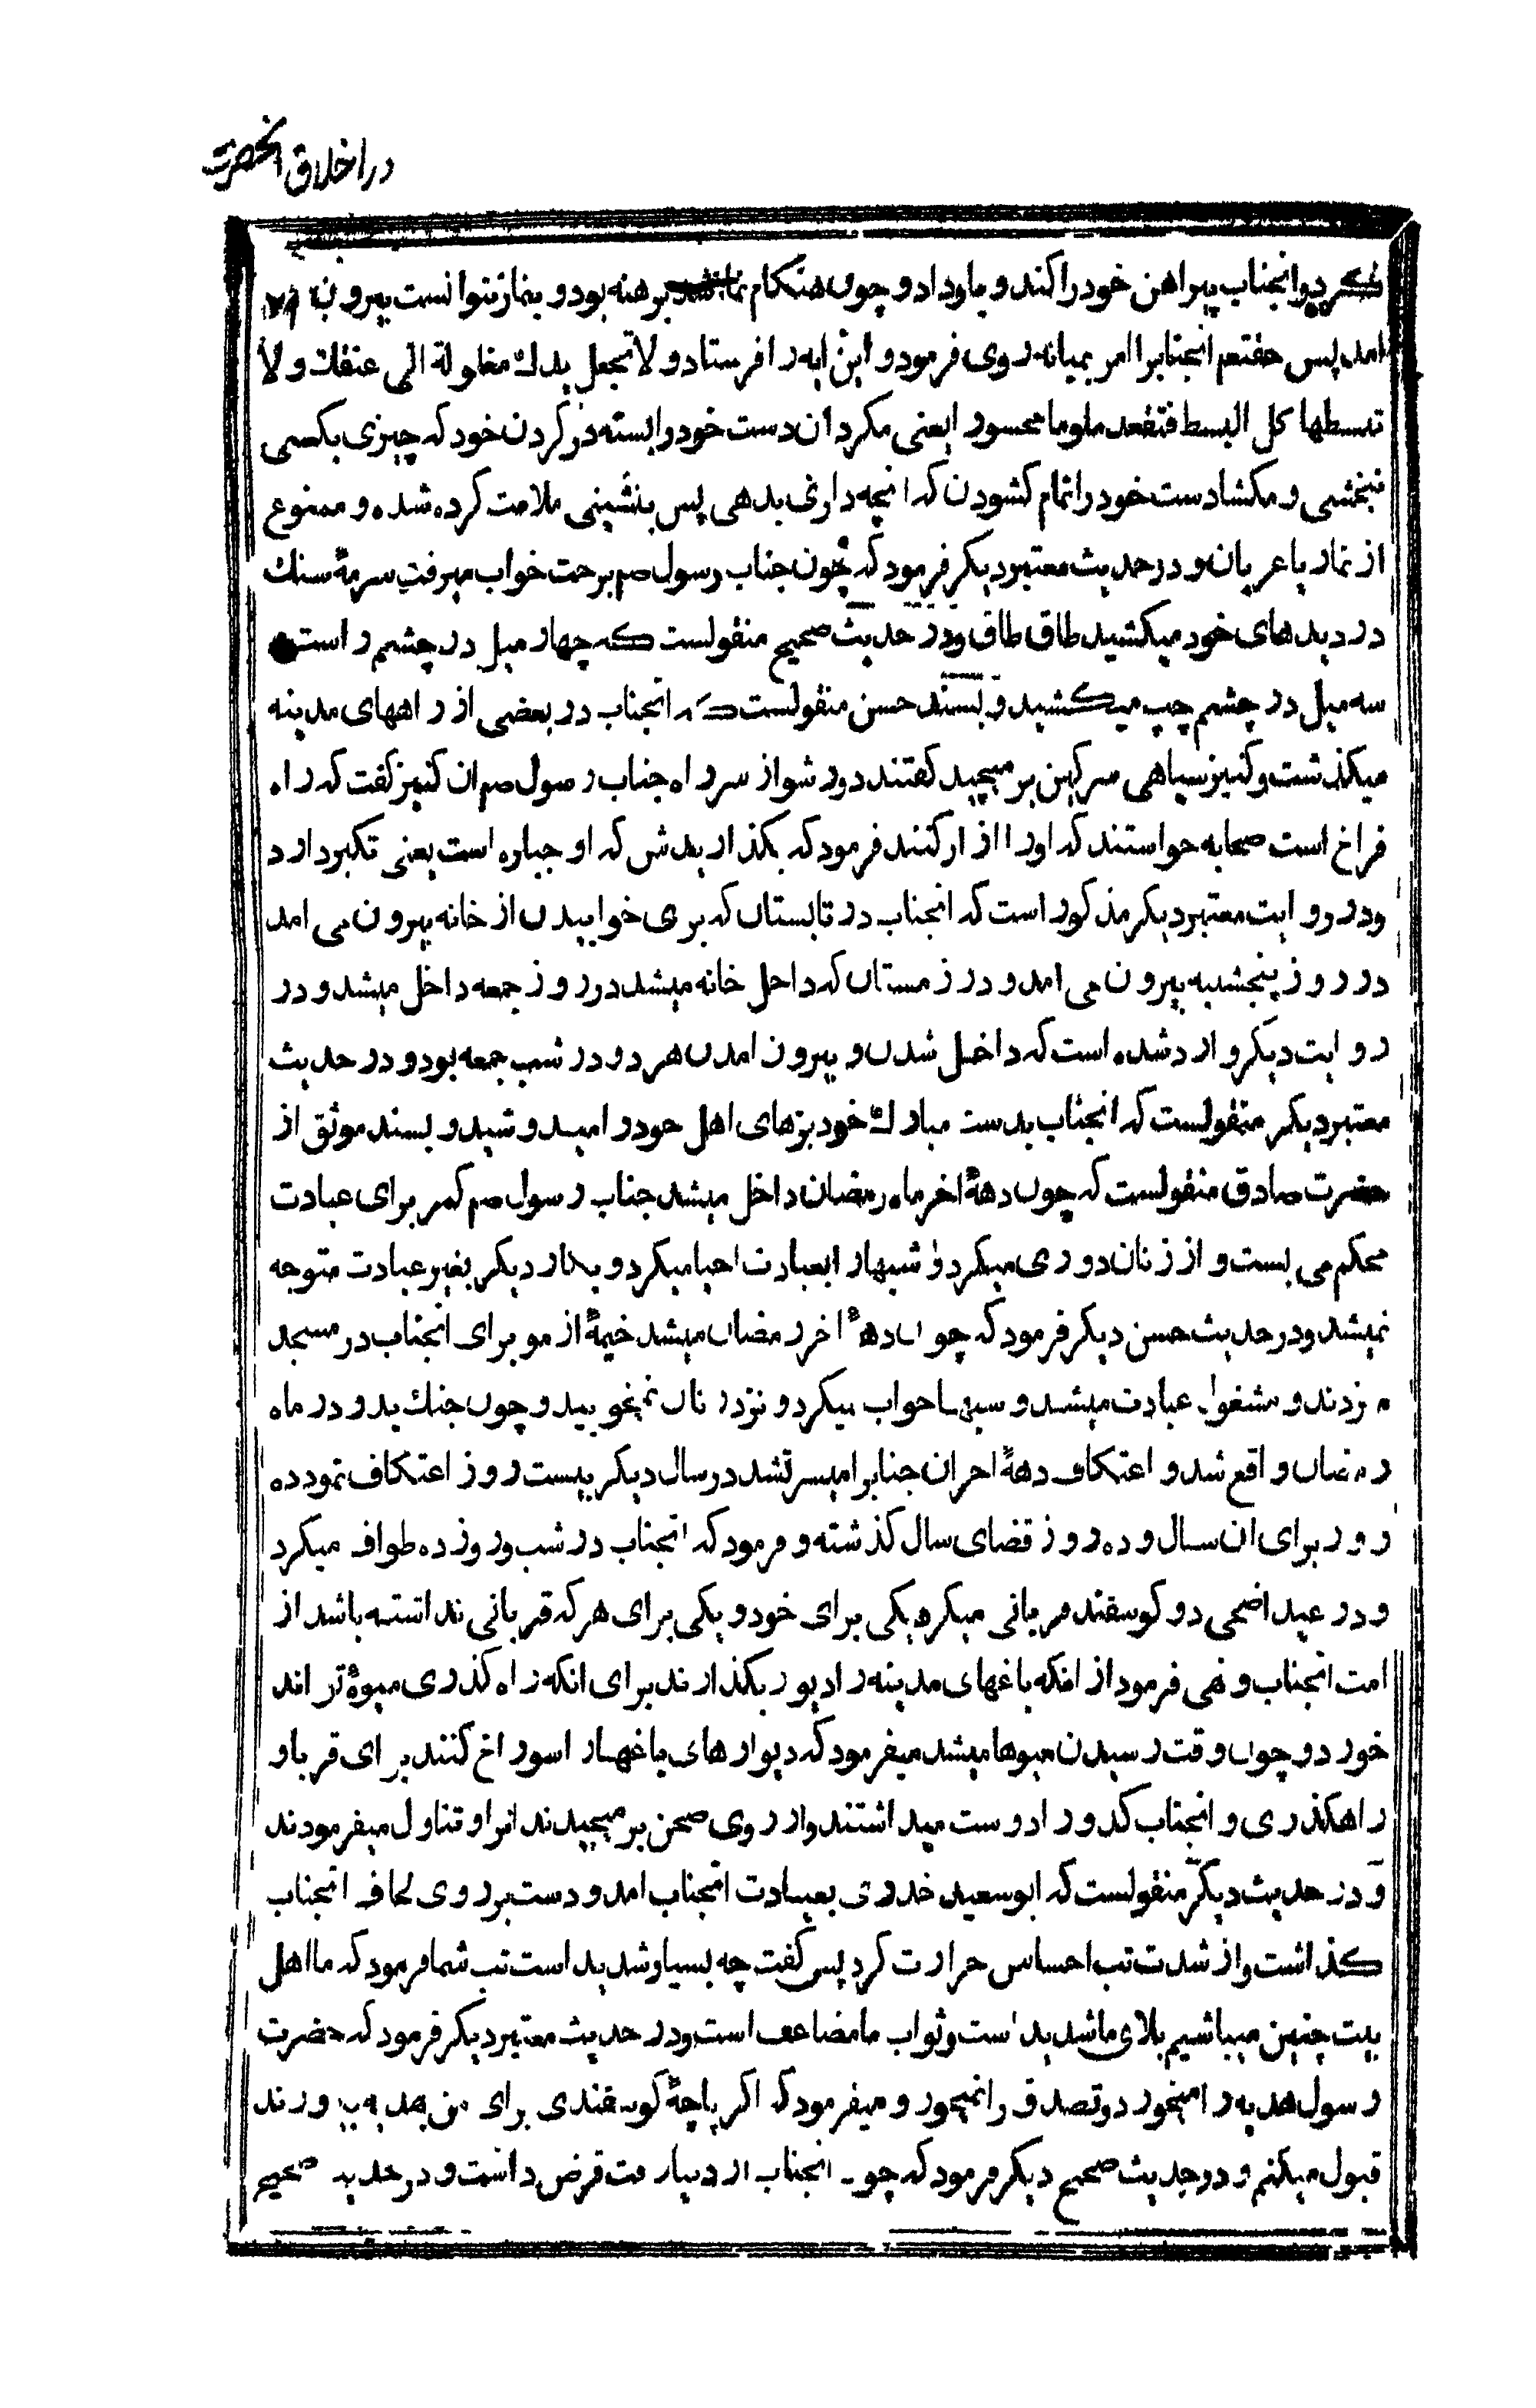 در اخلاق انحضرت
کرد پس انجناب پیراهن خود را کند و باو داد و چون هنکام نماز شد برهنه بود و بنماز نتوانست بیرون
امد پس حقتعم انجنابرا امر بمیانه روی فرمود و این ایه را فرستاد و لا تجعل یدك مغلولة الی عنقك و لا
تبسطها کل البسط فتقعد ملوما محسورا یعنی مکردان دست خود را بسته در کردن خود که چیزی بکسی
نبخشی و مکشا دست خود را تمام کشودن که انچه داری بدهی پس بنشینی ملامت کرده شده و ممنوع
از نماز یا عریان و در حدیث معتبر دیکر فرمود که چون جناب رسول صم برخت خواب میرفت سرمهٔ سنك
در دیدهای خود میکشید طاق طاق و در حدیث صحیح منقولست که چهار میل در چشم راست
سه میل در چشم چپ میکشید و بسند حسن منقولست که انجناب در بعضی از راههای مدینه
میکذشت و کنیز سیاهی سرکین بر میچید کفتند دور شو از سر راه جناب رسول صم ان کنیز کفت که راه
فراخ است صحابه خواستند که او را ازار کنند فرمود که بکذاریدش که او جباره است یعنی تکبر دارد
و در روایت معتبر دیکر مذکور است که انجناب در تابستان که بری خوابیدن از خانه بیرون می امد
در روز پنجشنبه بیرون می امد و در زمستان که داخل خانه میشد در روز جمعه داخل میشد و در
روایت دیکر وارد شده است که داخل شدن و بیرون امدن هر دو در شب جمعه بود و در حدیث
معتبر دیکر منقولست که انجناب بدست مبارك خود بزهای اهل خود را میدوشید و بسند موثق از
حضرت صادق منقولست که چون دههٔ اخر ماه رمضان داخل میشد جناب رسول صم کمر برای عبادت
محکم می بست و از زنان دوری میکرد و شبها را بعبادت احیا میکرد و بکار دیکر بغیر عبادت متوجه
نمیشد و در حدیث حسن دیکر فرمود که چون دههٔ اخر رمضان میشد خیمهٔ از مو برای انجناب در مسجد
م زدند و مشغول عبادت میشد و شبها خواب میکرد و نزد زنان نمیخوبید و چون جنك بدر در ماه
رمضان واقع شد و اعتکاف دههٔ اخر ان جنابرا میسر نشد در سال دیکر بیست روز اعتکاف نمود ده
روز برای ان سال و ده روز قضای سال کذشته و فرمود که انجناب در شب و روز ده طواف میکرد
و در عید اضحی دو کوسفند قربانی میکرد یکی برای خود و یکی برای هر که قربانی نداشته باشد از
امت انجناب و نهی فرمود از انکه باغهای مدینه را دیوار بکذارند برای انکه راه کذری میوهٔ تراند
خورد و چون وقت رسیدن میوها میشد میفرمود که دیوارهای باغها را سوراخ کنند برای قربا و
راهکذری و انجناب کدو را دوست میداشتند و از روی صحن بر میچیدند انرا و تناول میفرمودند
و در حدیث دیکر منقولست که ابو سعید خدری بعیادت انجناب امد و دست بر روی لحاف انجناب
کذاشت و از شدت تب احساس حرارت کرد پس کفت چه بسیار شدید است تب شما فرمود که ما اهل
بیت چنین میباشیم بلای ما شدید است و ثواب ما مضاعف است و در حدیث معتبر دیکر فرمود که حضرت
رسول هدیه را میخورد و تصدق را نمیخورد و میفرمود که اکر پاچهٔ کوسفندی برای من بهدیه بیاورند
قبول میکنم و در حدیث صحیح دیکر فرمود که چون انجناب از دنیا رفت قرض داشت و در حدیث صحیح